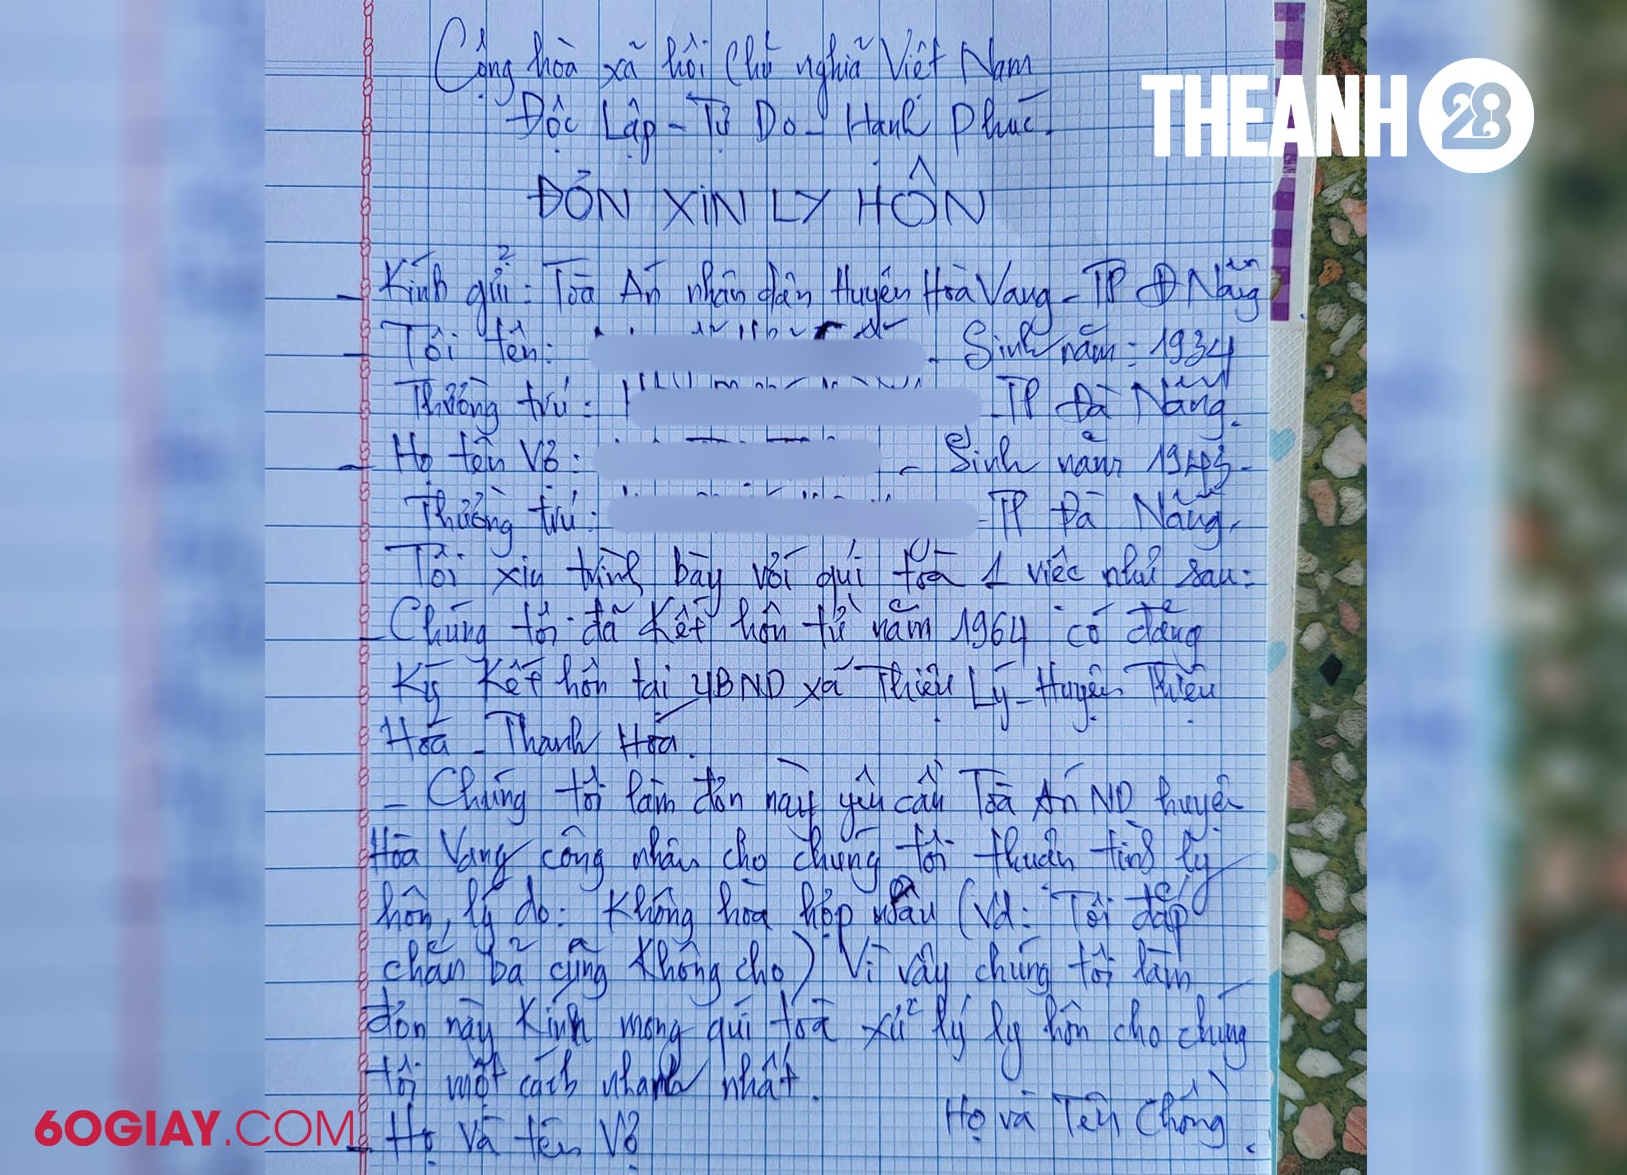 Cộng hòa xã hội Chủ nghĩa Việt Nam
Độc Lập - Tự Do - Hạnh Phúc.
THEANH 28
ĐƠN XIN LY HÔN
- Kính gửi: Tòa Án nhân dân Huyện Hòa Vang - TP Đ Nẵng
- Tôi tên: - Sinh năm: 1934
Thường trú: - TP Đà Nẵng.
- Họ tên Vợ: - Sinh năm 1943 -
Thường trú: - TP Đà Nẵng.
Tôi xin trình bày với quí tòa 1 việc như sau:
- Chúng tôi đã Kết hôn từ năm 1964 có đăng
Ký Kết hôn tại UBND xã Thiệu Lý - Huyện Thiệu
Hóa - Thanh Hóa.
- Chúng tôi làm đơn này yêu cầu Tòa Án ND huyện
Hòa Vang công nhận cho chúng tôi thuận tình ly
hôn, lý do: Không hòa hợp nhau (Vd: Tôi đắp
chăn bà cũng Không cho) Vì vậy chúng tôi làm
đơn này Kính mong quí tòa xử lý ly hôn cho chúng
tôi một cách nhanh nhất.
Họ và Tên Chồng.
- Họ và tên Vợ
60GIAY.COM